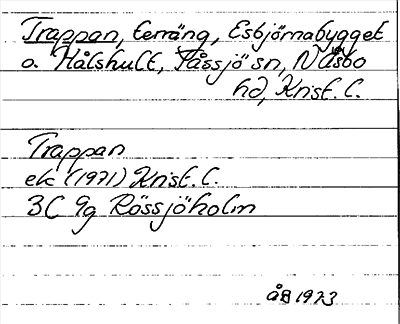 Trappan, terräng, Esbjörnabygget
o. Hålshult, Tåssjö sn, N Åsbo
hd, Krist. L.
Trappan
ek (1971) Krist. L.
3C 9g Rössjöholm
ÅB 1973